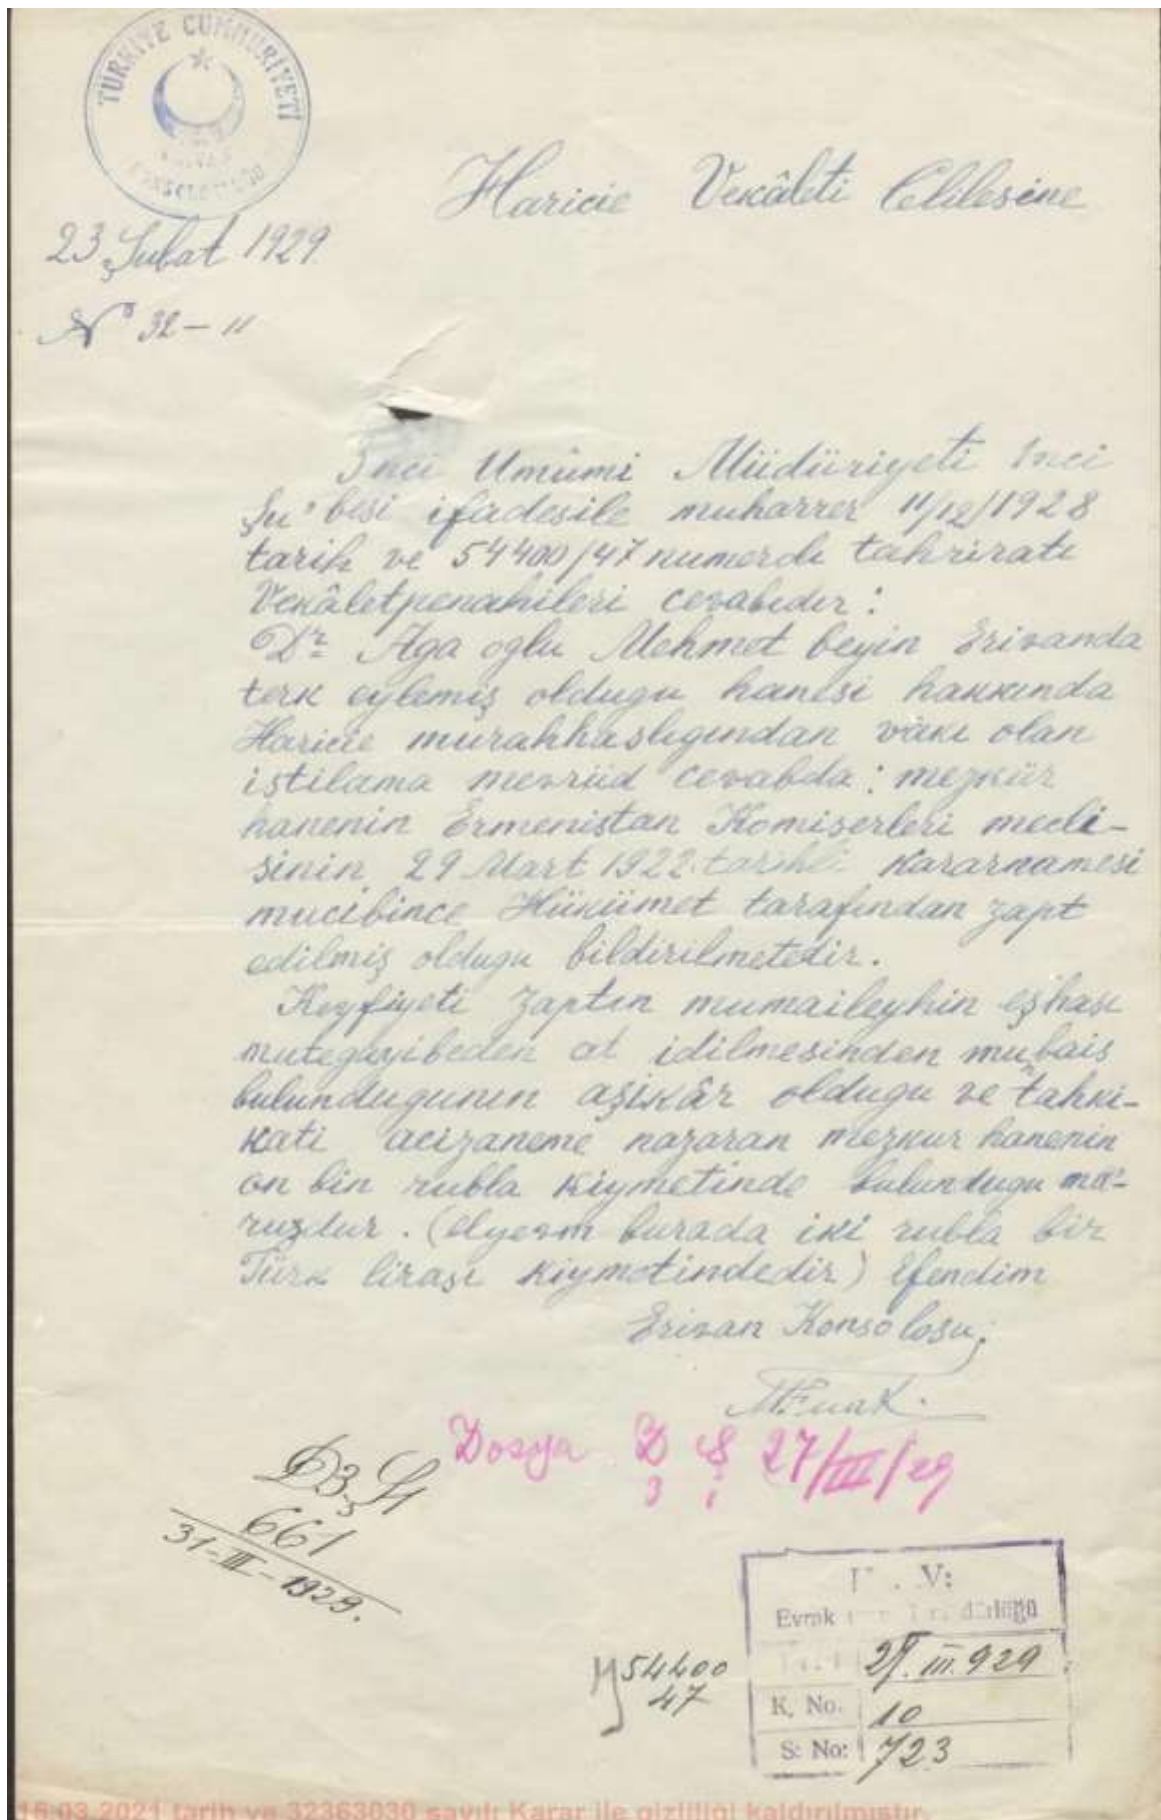 TÜRKİYE CUMHURİYETİ
Haricie Vekâleti Celilesine
23 Şubat 1929
Nº 32-11
3 nci Umûmi Müdüriyeti 1nci
Şu'besi ifadesile muharrer 11/12/1928
tarih ve 54400/47 numerolı tahriratı
Vekâletpenahileri cevabıdır:
Dr Aga oglu Mehmet beyin Erivanda
terk eylemiş oldugu hanesi hakkında
Haricie murahhaslıgından vâkı olan
istilama mevrüd cevabda: mezkür
hanenin Ermenistan Komiserleri mecli-
sinin 29 Mart 1922 tarihli kararnamesi
mucibince Hükümet tarafından zapt
edilmiş oldugu bildirilmetedir.
Keyfiyeti zaptın mumaileyhin eşhası
mutegayibeden ad idilmesinden
bulundugunın aşikâr oldugu ve tahki-
kati acizaneme nazaran mezkur hanenin
on bin rubla kiymetinde bulundugu ma'-
ruzdur. (elyevm burada iki rubla bir
Türk lirası kiymetindedir) Efendim
Erivan Konsolosu;
M. Fuat
Dosya D Ş 27/III/29
3 1
D3.Ş1
661
31-III-1929.
54400
47
V:
Evrak
III.929
K. No. 10
S: No: 723
15.03.2021 tarih ve 32363030 sayılı Karar ile gizliliği kaldırılmıştır.